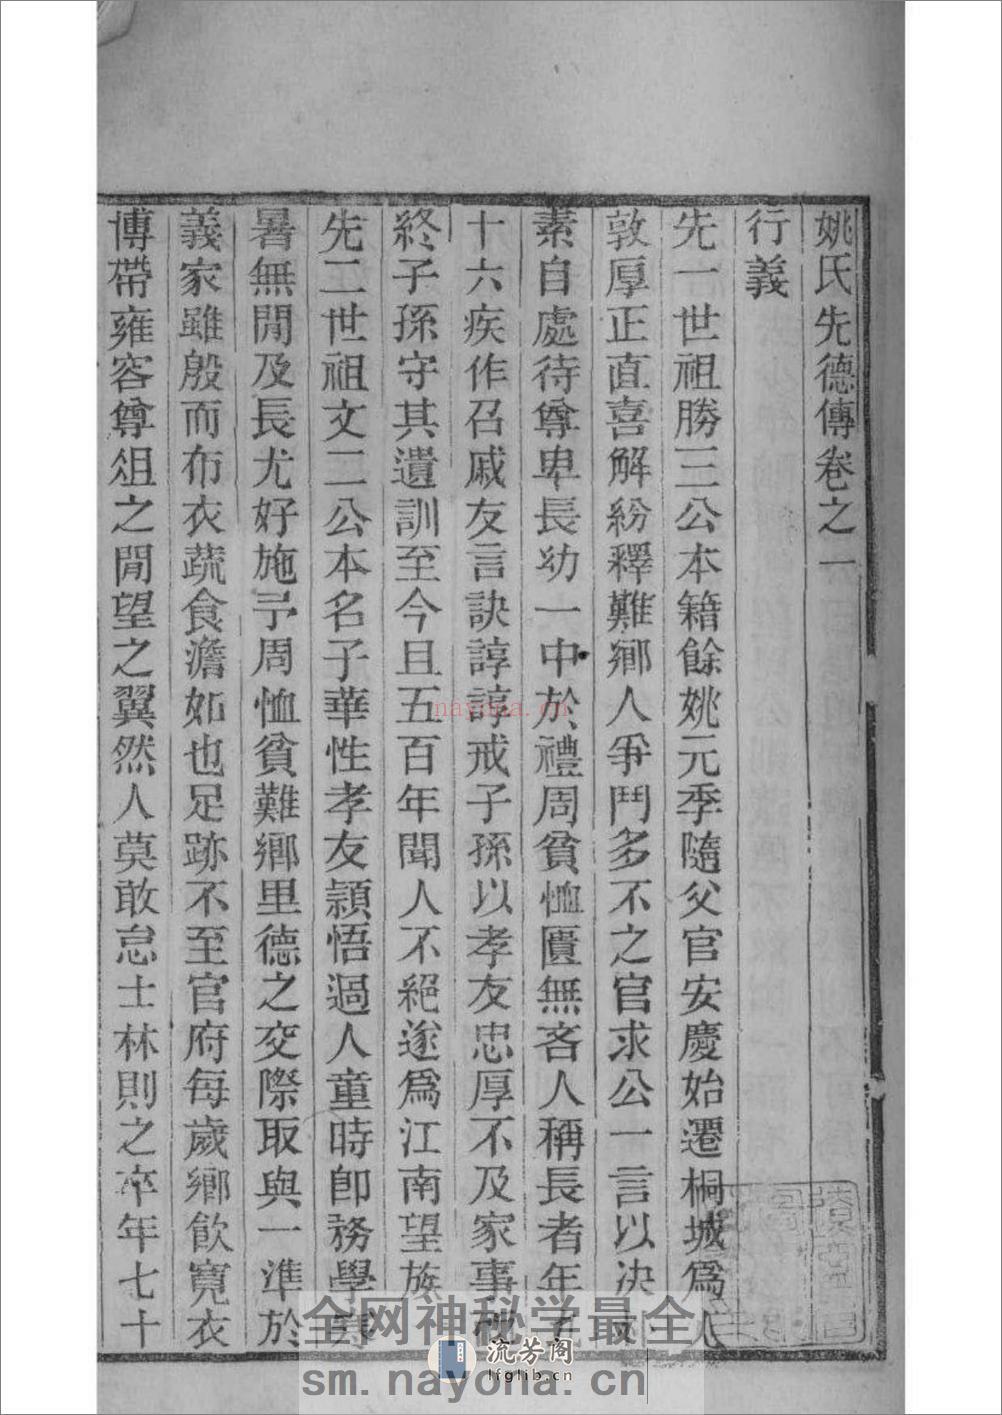 姚氏先德傳卷之一
行義
先一世祖勝三公本籍餘姚元季隨父官安慶始遷桐城爲人
敦厚正直喜解紛釋難鄉人爭鬥多不之官求公一言以決
素自處待尊卑長幼一中於禮周貧恤匱無吝人稱長者年
十六疾作召戚友言訣諄諄戒子孫以孝友忠厚不及家事
終子孫守其遺訓至今且五百年聞人不絕遂爲江南望族
先二世祖文二公本名子華性孝友穎悟過人童時卽務學寒
暑無閒及長尤好施予周恤貧難鄉里德之交際取與一準於
義家雖殷而布衣蔬食澹如也足跡不至官府每歲鄉飲寬衣
博帶雍容尊俎之閒望之翼然人莫敢怠士林則之卒年七十
nayona.cn
全网神秘学最全
流芳阁
lfglib.cn
sm.nayona.cn